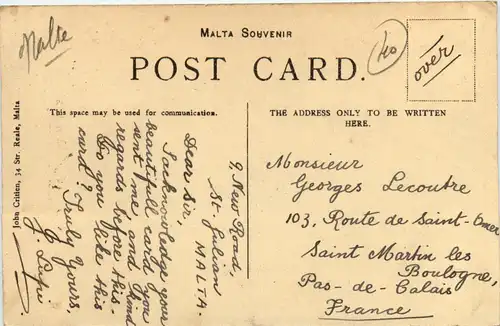 Malte
MALTA SOUVENIR
40
over
POST CARD.
This space may be used for communication.
THE ADDRESS ONLY TO BE WRITTEN
HERE.
John Critien, 34 Str. Reale, Malta
9, New Road,
St. Julian
MALTA.
Dear Sir,
I acknowledge your
beautifull card you
sent me, and send
regards before this.
Do you like this
card?
Truly Yours,
J.
Monsieur
Georges Lecoutre
103, Route de Saint-Omer
Saint Martin les
Boulogne,
Pas-de-Calais
France